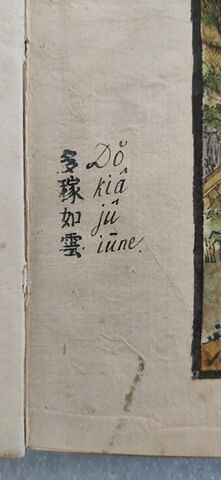 多稼如雲
Dŏ
kiâ
jû
iūne